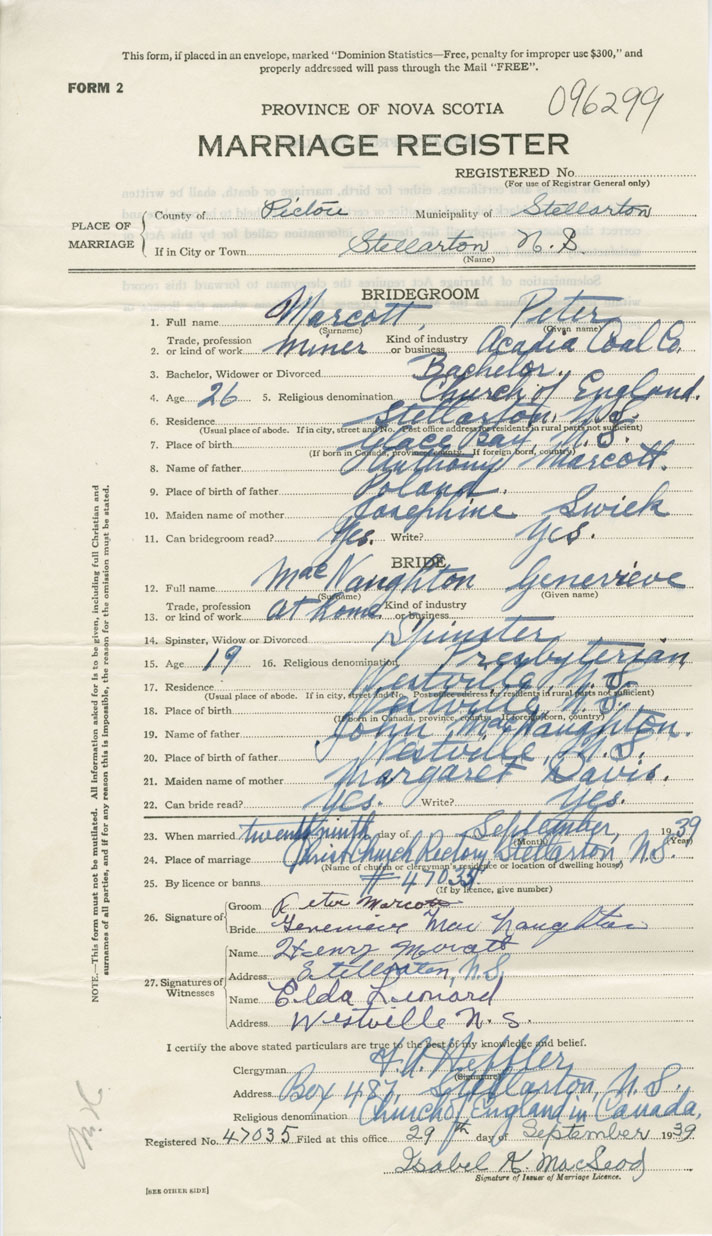 This form, if placed in an envelope, marked "Dominion Statistics—Free, penalty for improper use $300," and
properly addressed will pass through the Mail "FREE".
FORM 2
096299
PROVINCE OF NOVA SCOTIA
MARRIAGE REGISTER
REGISTERED No.
(For use of Registrar General only)
PLACE OF MARRIAGE
County of Pictou Municipality of Stellarton
If in City or Town Stellarton N.S.
(Name)
BRIDEGROOM
1. Full name Marcott, Peter
(Surname) (Given name)
2. Trade, profession or kind of work Miner Kind of industry or business Acadia Coal Co.
3. Bachelor, Widower or Divorced Bachelor.
4. Age 26 5. Religious denomination Church of England.
6. Residence Stellarton, N.S.
(Usual place of abode. If in city, street and No. Post office address for residents in rural parts not sufficient)
7. Place of birth Glace Bay, N.S.
(If born in Canada, province, county. If foreign born, country)
8. Name of father Anthony Marcott.
9. Place of birth of father Poland.
10. Maiden name of mother Josephine Swick
11. Can bridegroom read? Yes. Write? Yes.
BRIDE
12. Full name MacNaughton Genevieve
(Surname) (Given name)
13. Trade, profession or kind of work At home Kind of industry or business
14. Spinster, Widow or Divorced Spinster
15. Age 19 16. Religious denomination Presbyterian
17. Residence Westville, N.S.
(Usual place of abode. If in city, street and No. Post office address for residents in rural parts not sufficient)
18. Place of birth Westville, N.S.
(If born in Canada, province, county. If foreign born, country)
19. Name of father John MacNaughton.
20. Place of birth of father Westville, N.S.
21. Maiden name of mother Margaret Davis.
22. Can bride read? Yes. Write? Yes.
23. When married twenty ninth day of September, 1939
(Month) (Year)
24. Place of marriage Christ Church Rectory Stellarton N.S.
(Name of church or clergyman's residence or location of dwelling house)
25. By licence or banns # 47035.
(If by licence, give number)
26. Signature of
Groom Peter Marcott
Bride Genevieve MacNaughton
27. Signatures of Witnesses
Name Henry
Address Stellarton, N.S.
Name Elda Leonard
Address Westville N.S.
I certify the above stated particulars are true to the best of my knowledge and belief.
Clergyman
(Signature)
Address Box 487, Stellarton, N.S.
Religious denomination Church of England in Canada.
Registered No. 47035 Filed at this office 29th day of September 1939
Isabel K. MacLeod
Signature of Issuer of Marriage Licence.
[SEE OTHER SIDE]
NOTE.—This form must not be mutilated. All information asked for is to be given, including full Christian and
surnames of all parties, and if for any reason this is impossible, the reason for the omission must be stated.